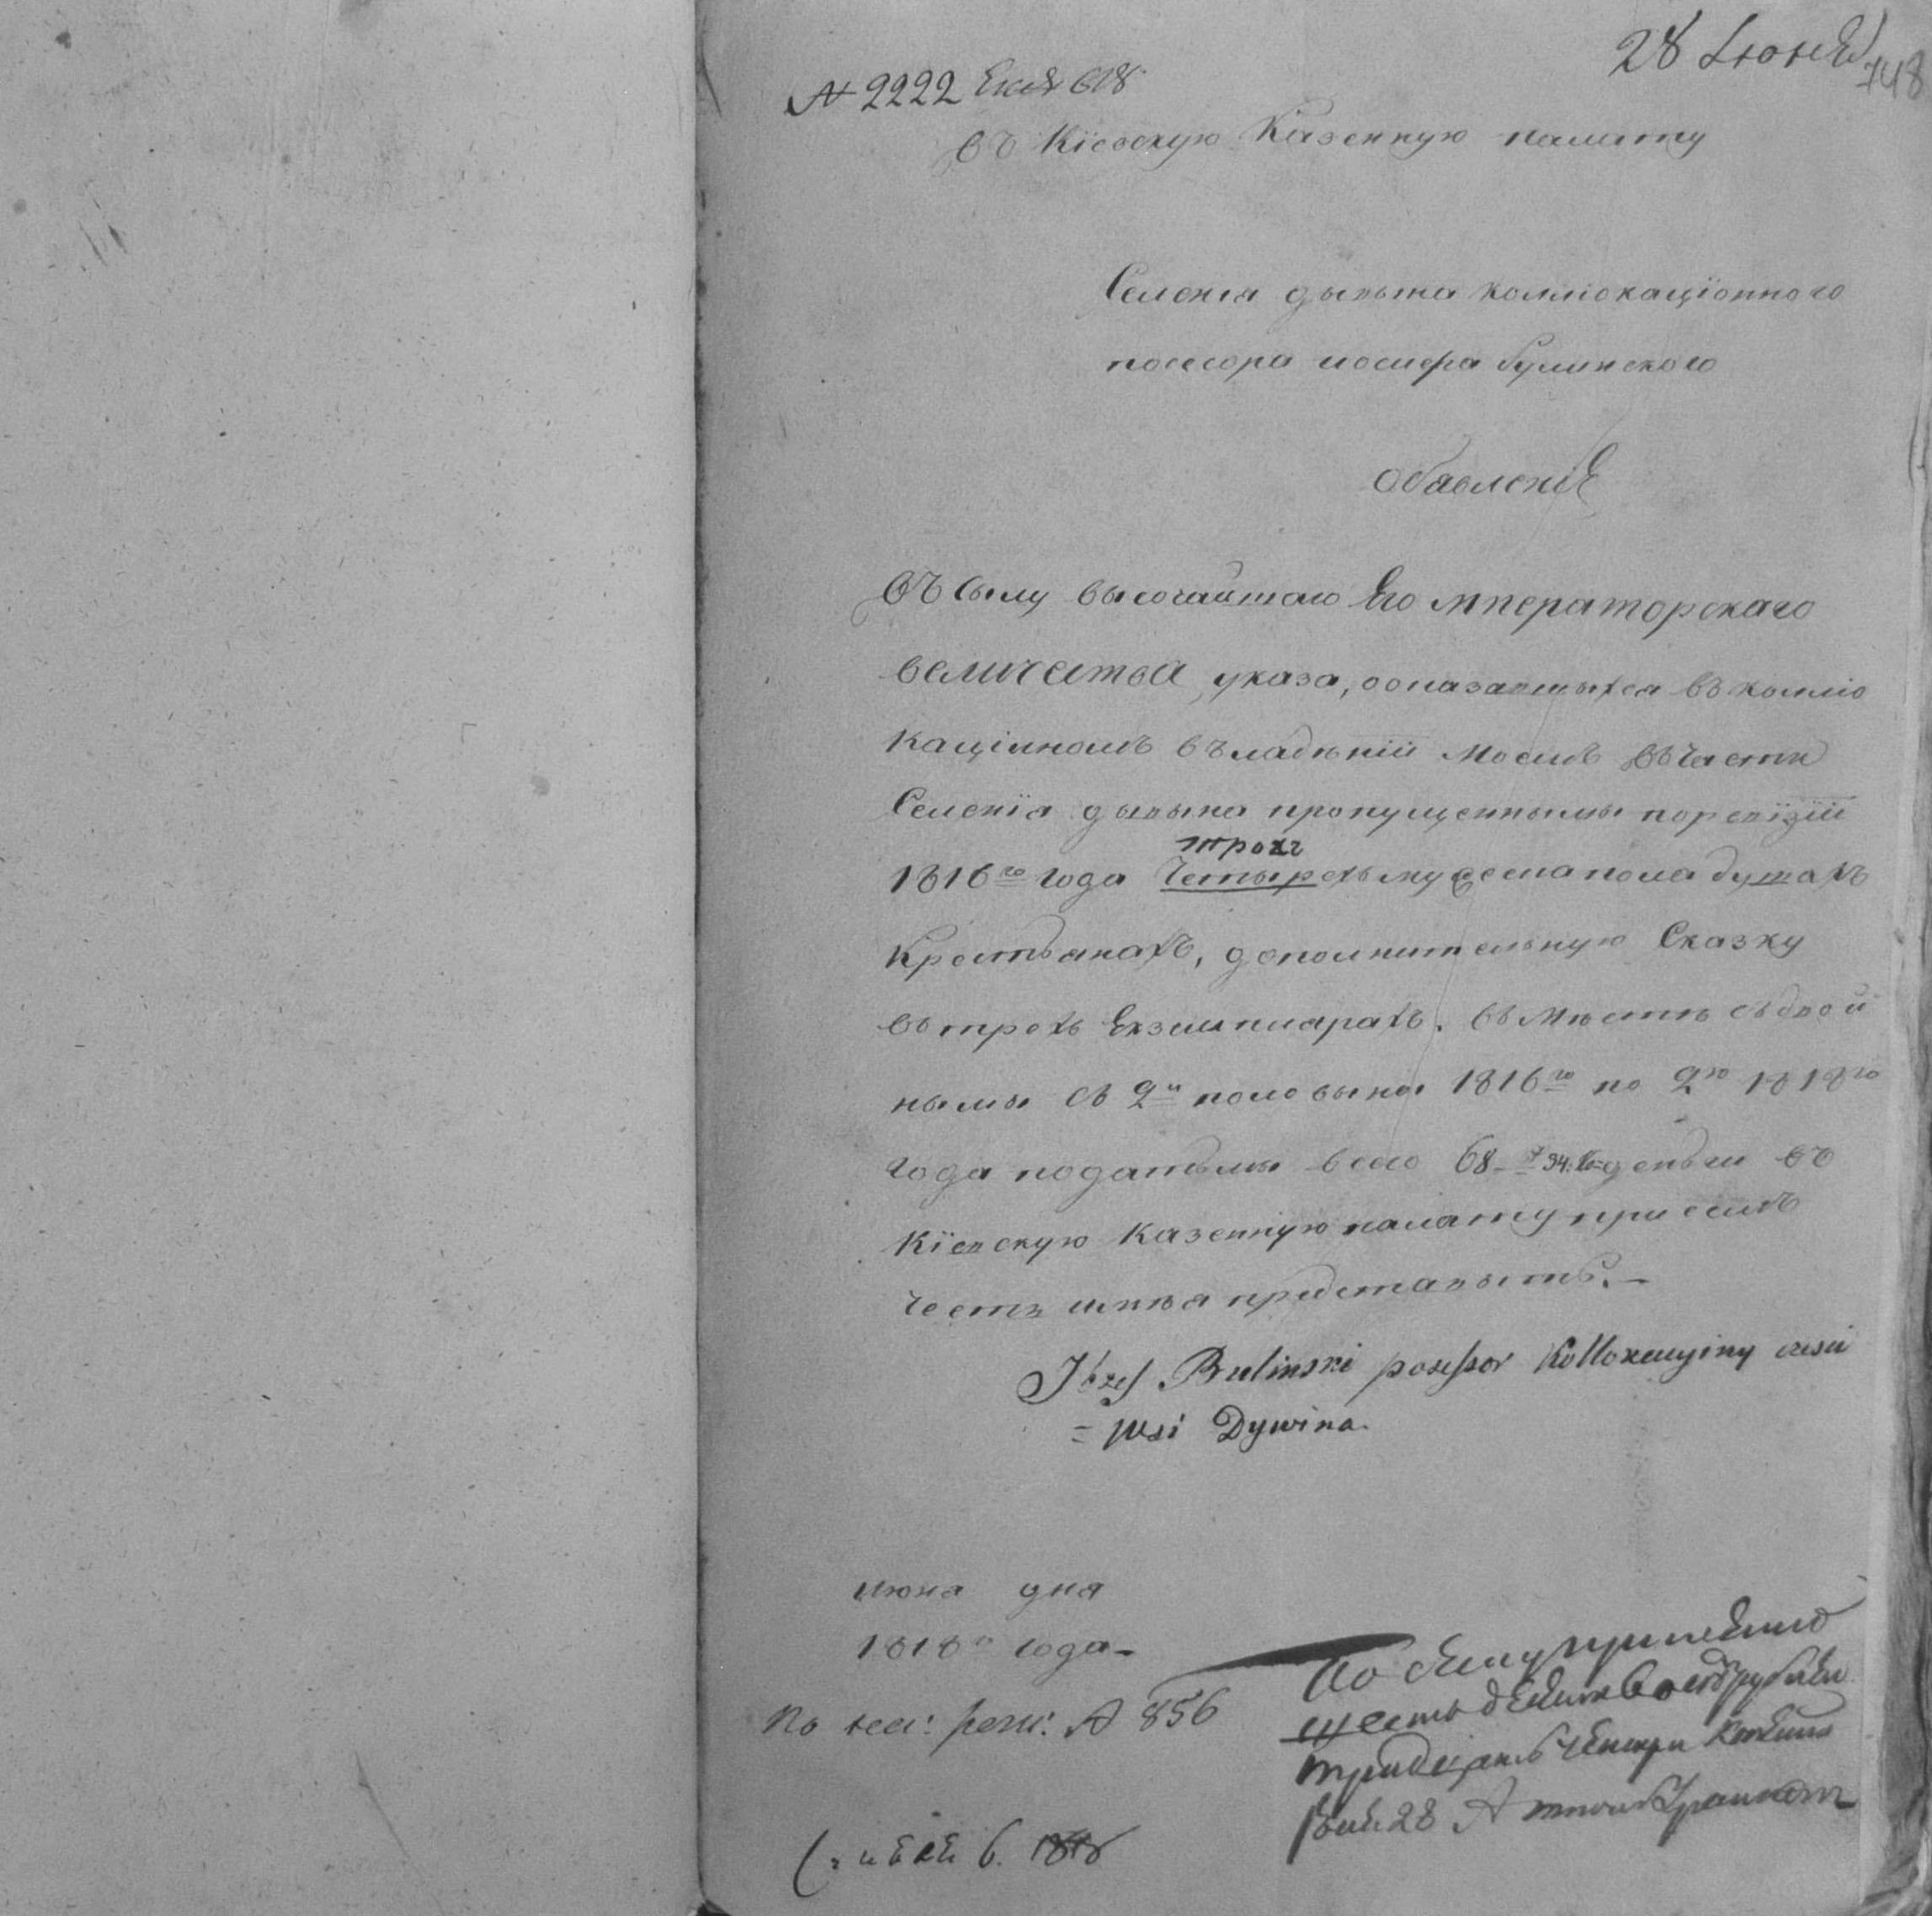 28 Июня
748
№ 2222
въ Кіевскую Казенную палату
Селенія дывына коллокаціонного
посесора иосифа булинского
Обавленіе
Въ сылу высочаишаго Его Мператорскаго
величества указа, оопазавшыхся въ колло
каціиномъ въладѣніи Моемъ въ части
Селенія дывына пропущеннымы поревізіи
трохъ
1816го года Четырехъ мужеска пола душахъ
Крестьянахъ, дополнительную Сказку
въ трехъ Екземплярахъ. въ Мѣстѣ съ двои
нымы съ 2й половыны 1816го по 2ю 1818го
года податьмы всего 68 94: ко денги въ
Кіевскую Казенную палату при семъ
Честь имѣя представыть.
Józef Buliński possessor Kollokacyiny czesci
= wsi Dywina.
июня дня
1818го года
По 856
По сему принято
шесть десять восемъ рублей
тридцать четыри копейки
28